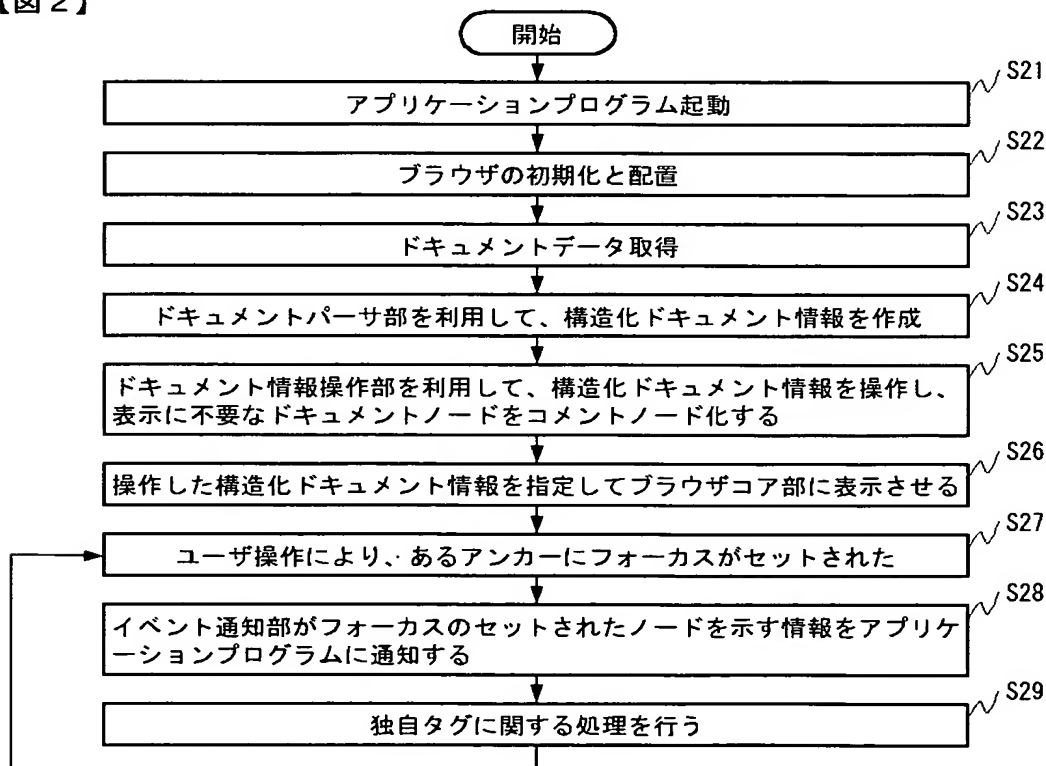 【図2】
開始
S21
アプリケーションプログラム起動
S22
ブラウザの初期化と配置
S23
ドキュメントデータ取得
S24
ドキュメントパーサ部を利用して、構造化ドキュメント情報を作成
S25
ドキュメント情報操作部を利用して、構造化ドキュメント情報を操作し、
表示に不要なドキュメントノードをコメントノード化する
S26
操作した構造化ドキュメント情報を指定してブラウザコア部に表示させる
S27
ユーザ操作により、あるアンカーにフォーカスがセットされた
S28
イベント通知部がフォーカスのセットされたノードを示す情報をアプリケ
ーションプログラムに通知する
S29
独自タグに関する処理を行う